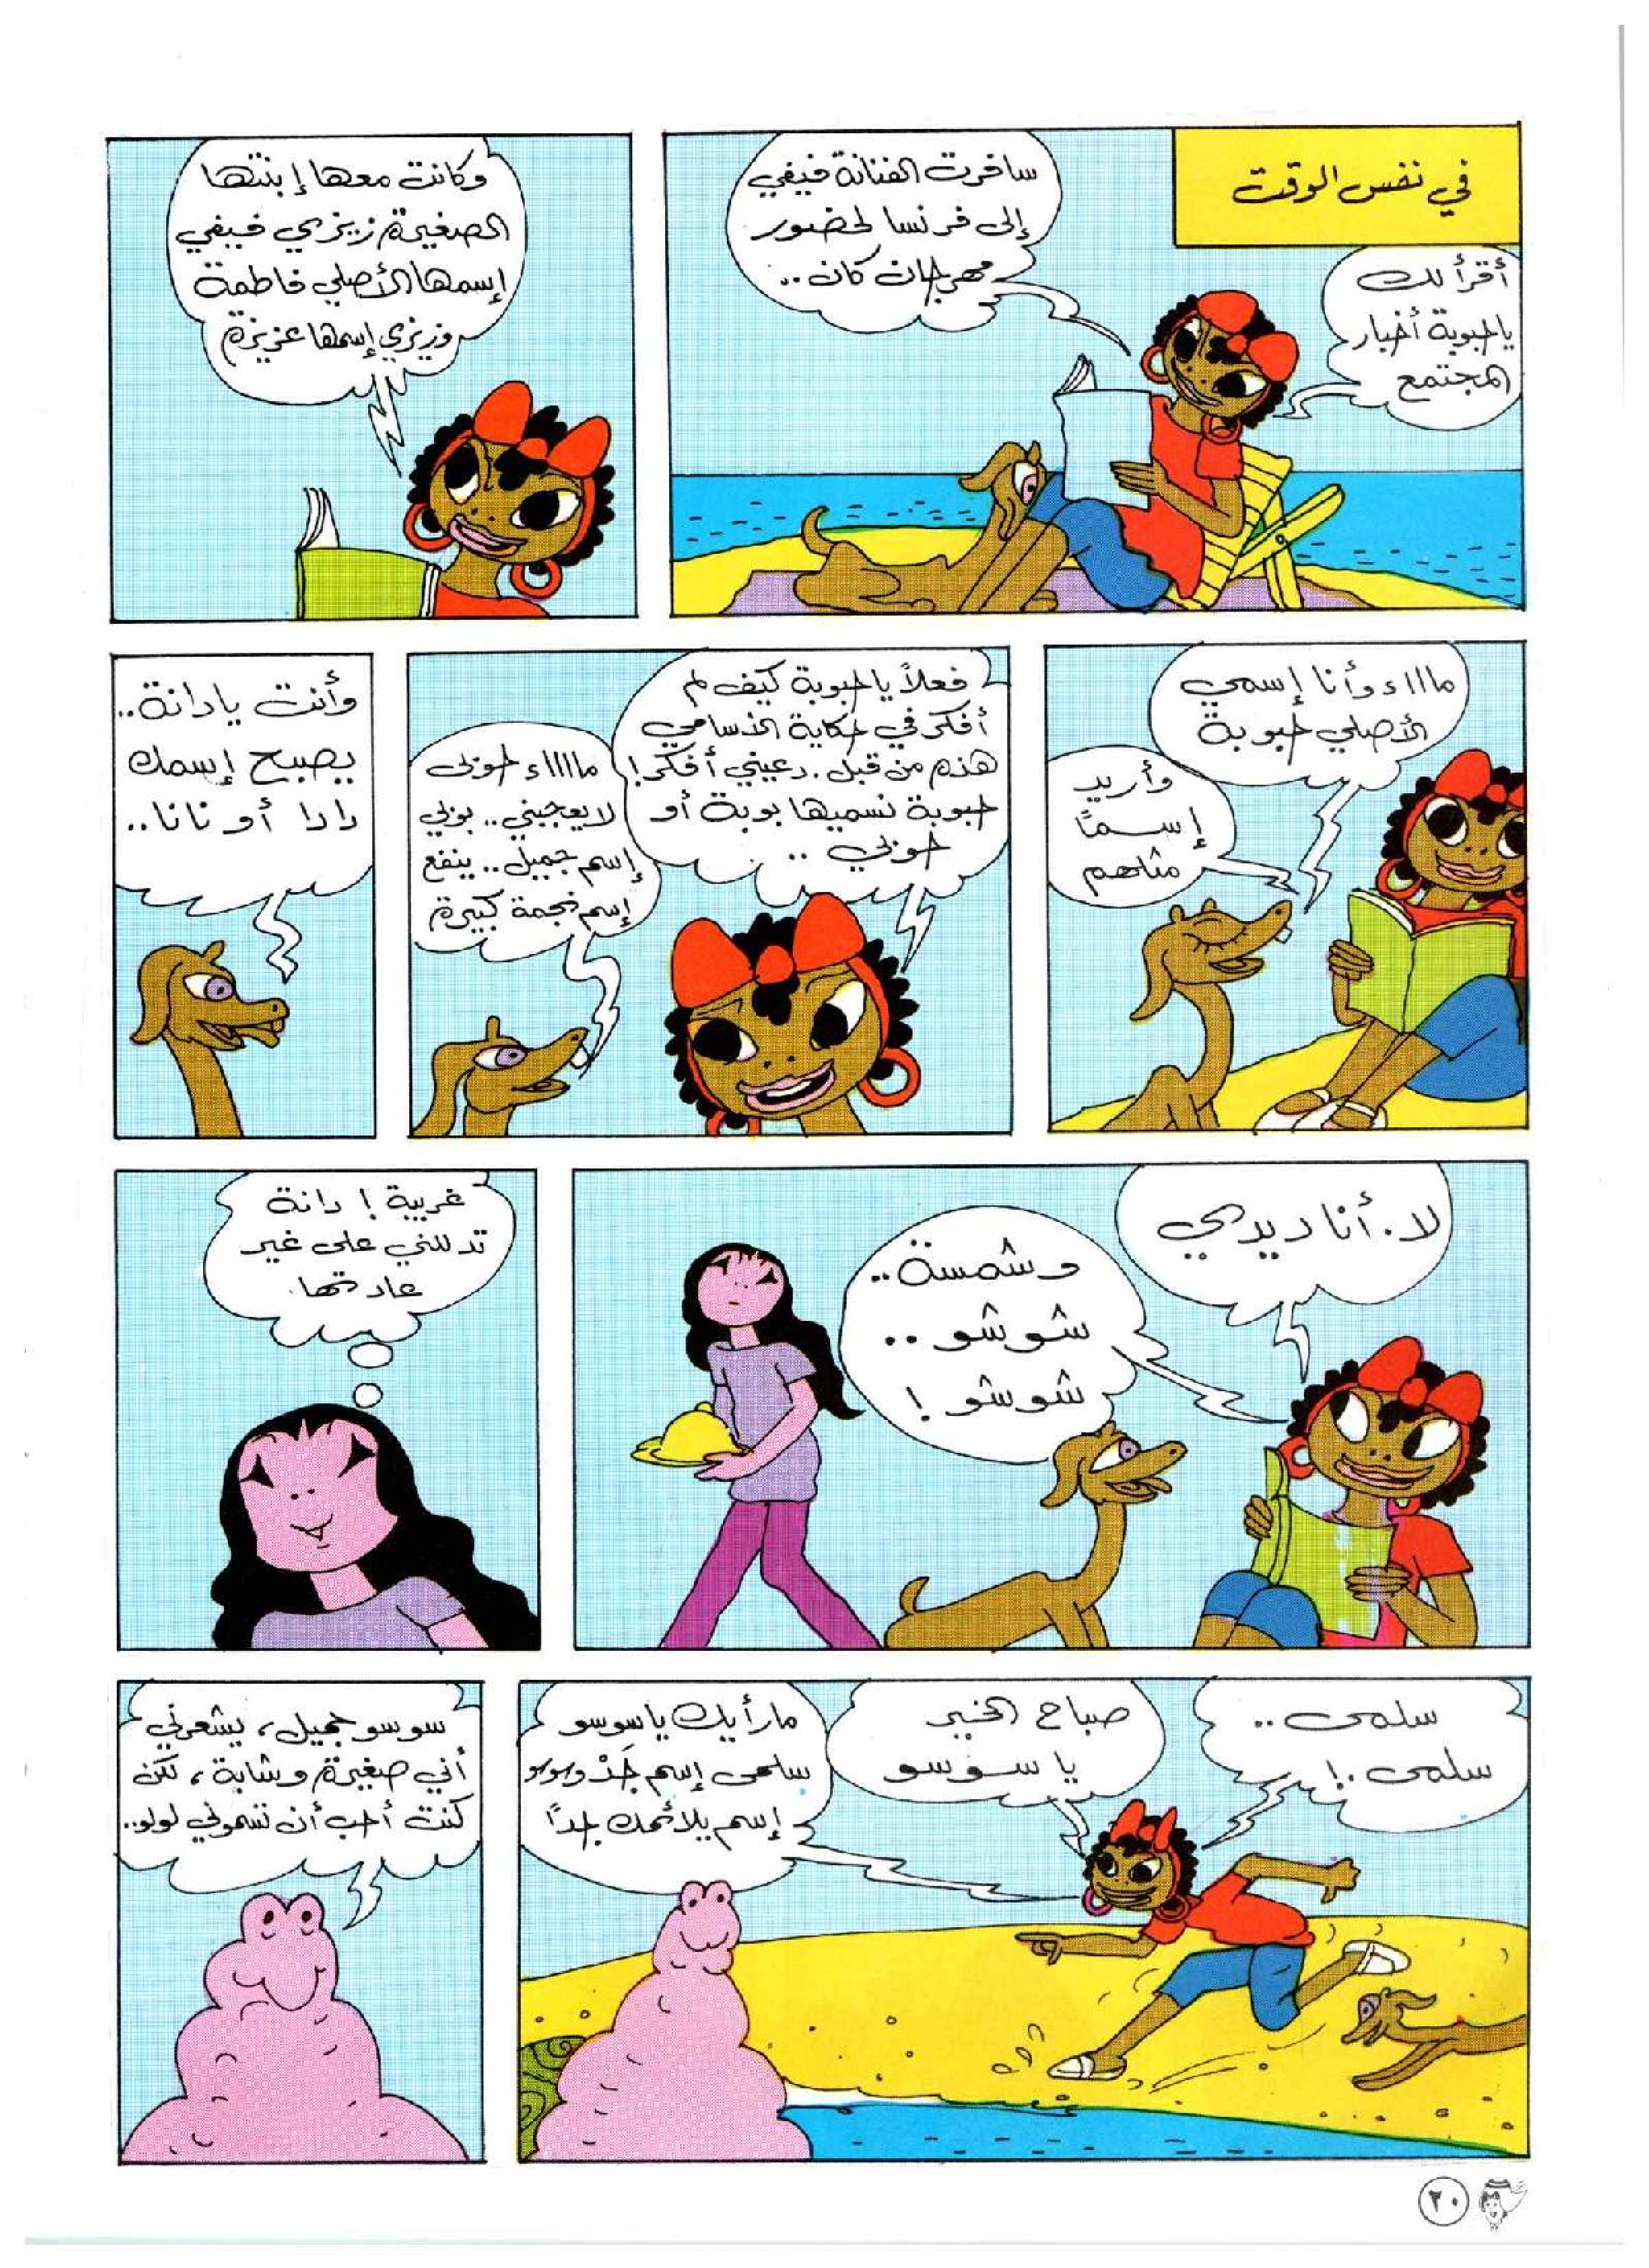 في نفس الوقت
أقرأ لك
يا حبوبة أخبار
المجتمع
سافرت الفنانة فيفي
إلى فرنسا لحضور
مهرجان كان ..
وكانت معها إبنتها
الصغيرة زيزي فيفي
إسمها الأصلي فاطمة
وزيزي إسمها عزيزة
ماااء وأنا إسمي
الأصلي حبوبة
وأريد
إسماً
مثلهم
فعلاً يا حبوبة كيف لم
أفكر في حكاية الأسامي
هذه من قبل . دعيني أفكر !
حبوبة نسميها بوبة أو
حوبي ..
مااااء حوبي
لا يعجبني .. بوبي
إسم جميل .. ينفع
إسم نجمة كبيرة
وأنت يا دانة ..
يصبح إسمك
دادا أو نانا ..
لا . أنا ديدي
وشمسة ..
شوشو ..
شوشو !
غريبة ! دانة
تدللني على غير
عادتها .
سلمى ..
سلمى . !
صباح الخير
يا سوسو
ما رأيك يا سوسو
سلمى إسم جَدْ وسوسو
إسم يلائمك جداً
سوسو جميل ، يشعرني
أني صغيرة وشابة ، لكن
كنت أحب أن تسموني لولو ..
٢٠